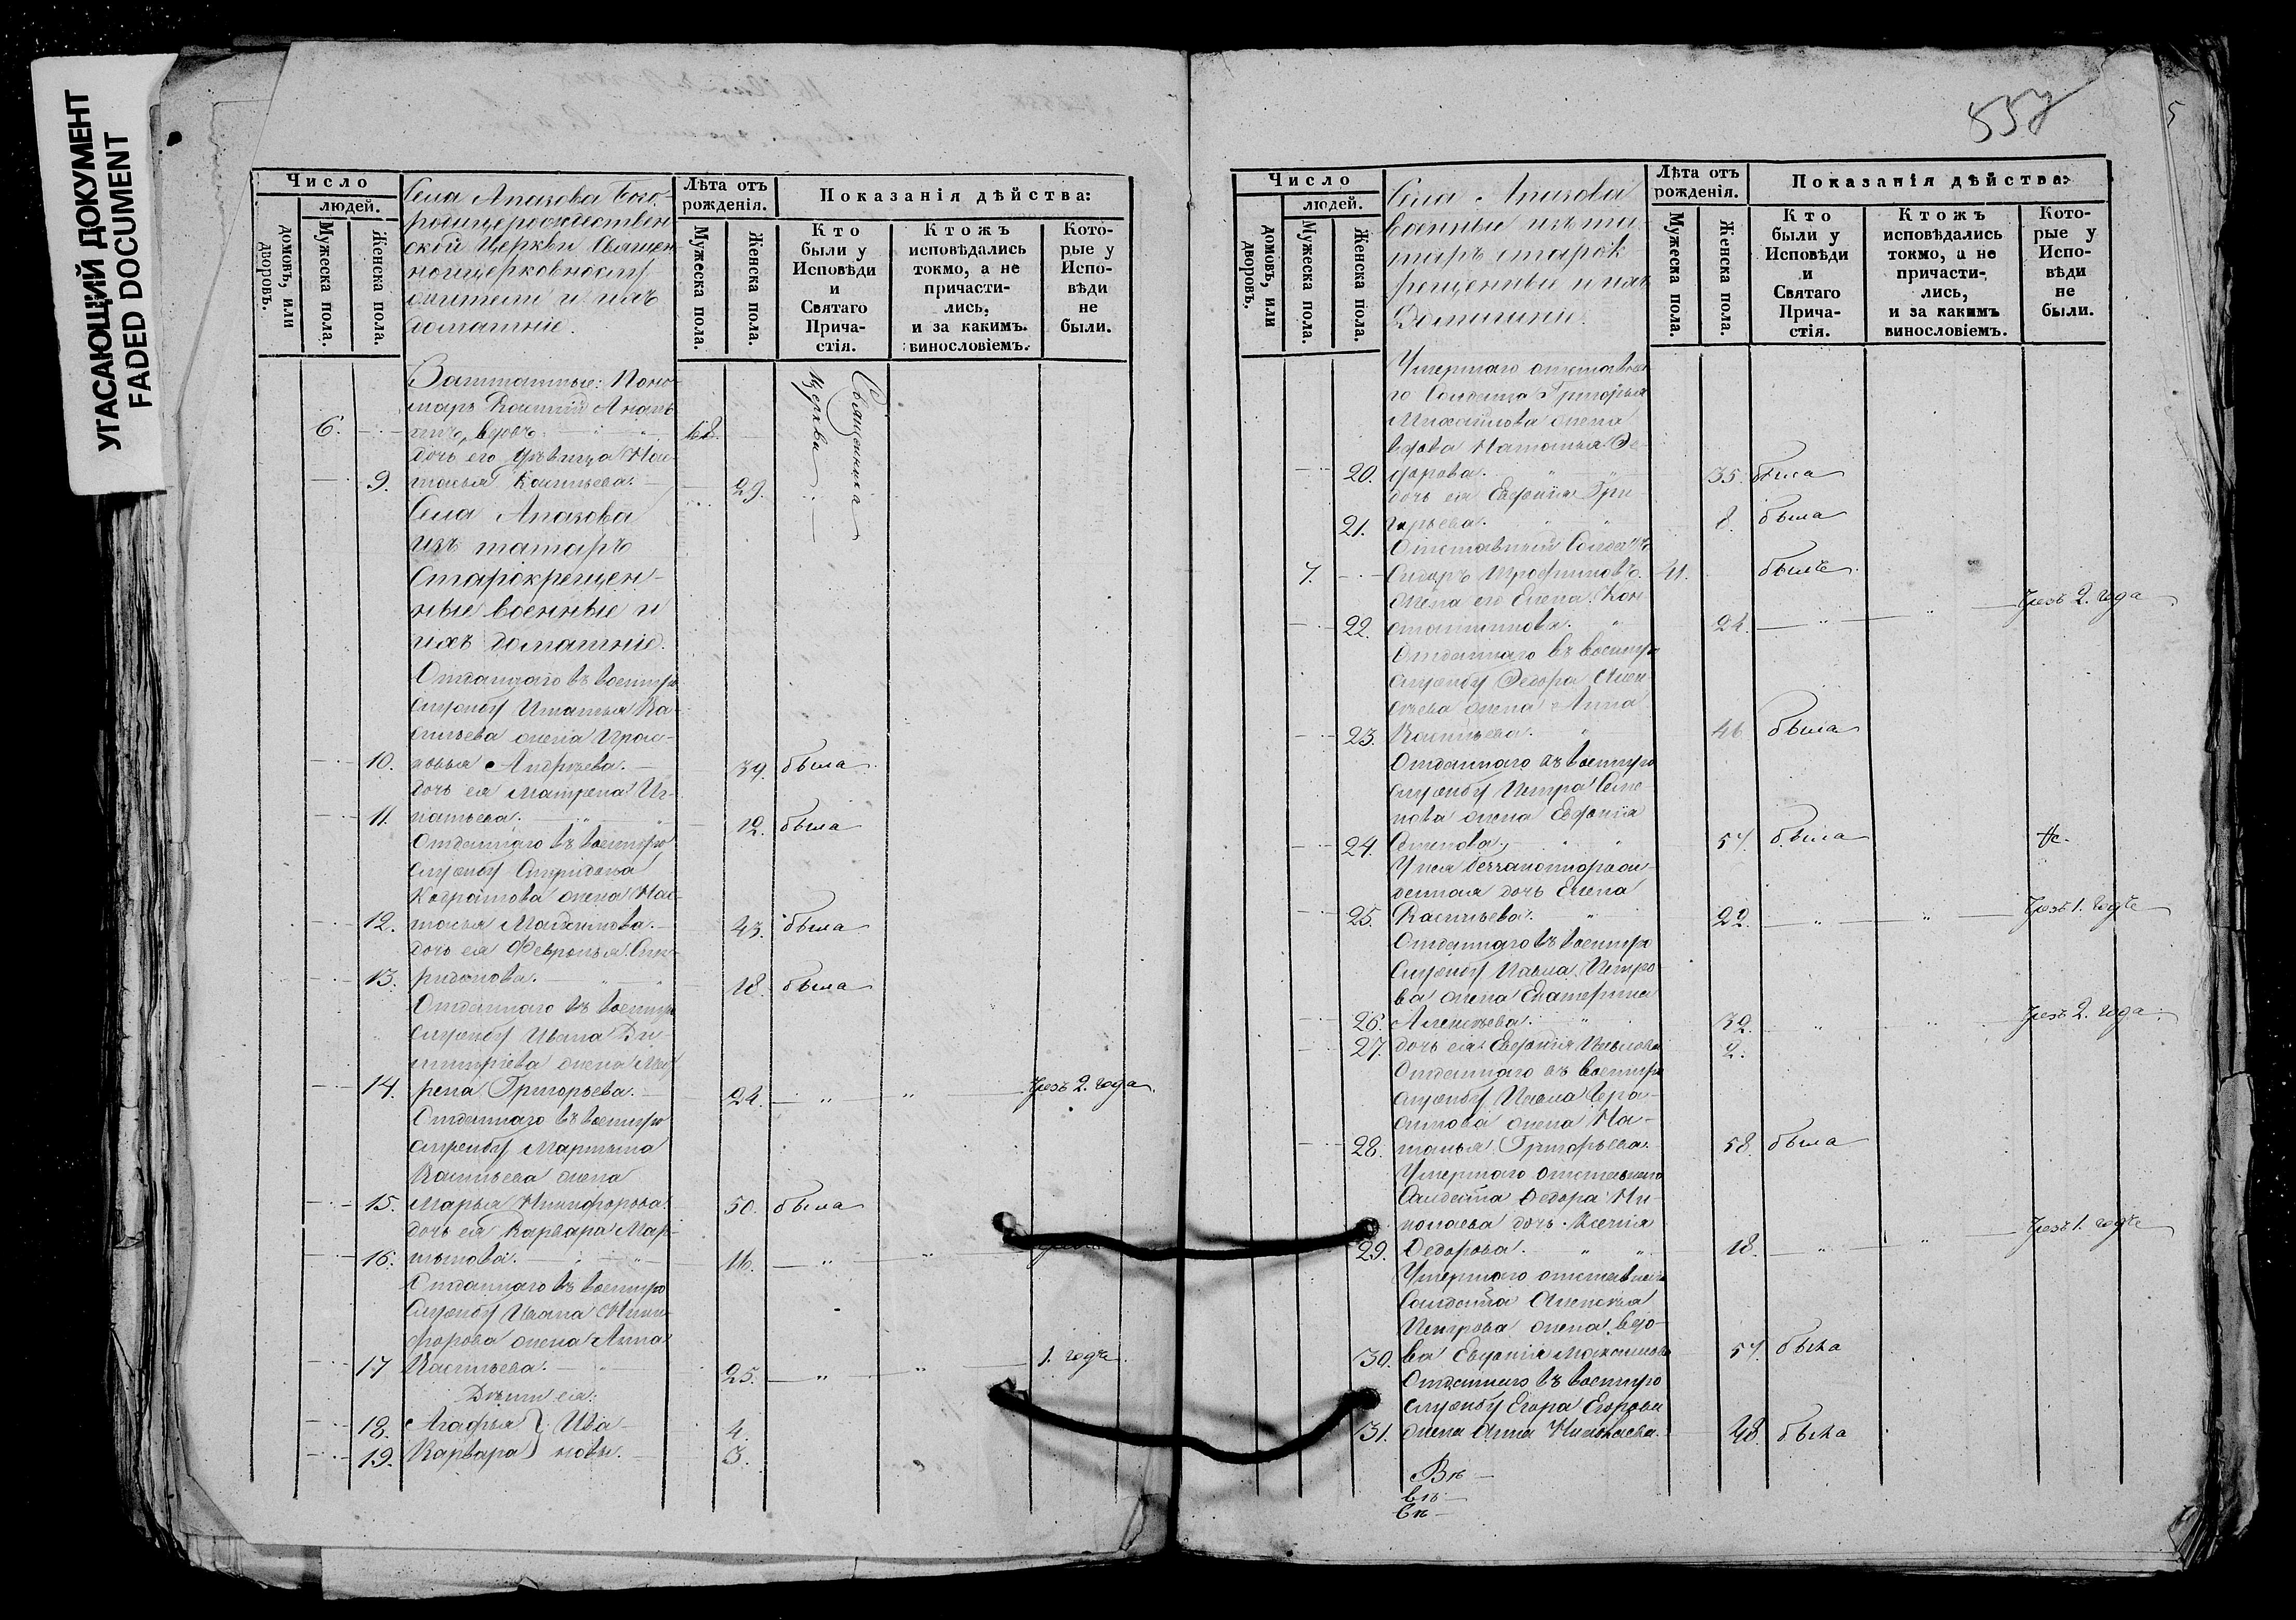 УГАСАЮЩИЙ ДОКУМЕНТ
FADED DOCUMENT
Число
людей.
домовъ, или дворовъ.
Мужеска пола.
Женска пола.
Села Апазова Бого-
родицерождествен
ской Церкви Священ
ноицерковнослу-
жители и ихъ
домашніе.
Лѣта отъ рожденія.
Мужеска пола.
Женска пола.
Показанія дѣйства:
Кто были у Исповѣди и Святаго Прича-стія.
Ктожъ исповѣдались токмо, а не причасти-лись, и за какимъ винословіемъ.
Кото-рые у Испо-вѣди не были.
Заштатные: Поно-
марь Василій
6. вдовъ 68.
дочь его дѣвица Нас-
9. тасья Васильева. 29.
Священника
Церкви
Села Апазова
изъ татаръ
Старокрещен-
ные военные и
ихъ домашніе.
Отданнаго въ военную
службу Игнатья Ва-
сильева жена Прас-
10. ковья Андреева. 39. была
дочь ея Матрена Иг-
11. натьева. 12. была
Отданнаго въ военную
службу Спиридона
Кондратова жена Нас-
12. тасья Максимова. 43. была
дочь ея Февронья Спи-
13. ридонова. 18. была
Отданнаго въ военную
службу Ивана Ди-
митріева жена
14. Григорьева. 24. чрезъ 2. года
Отданнаго въ военную
службу Мартына
Васильева жена
15. Марья Никифорова. 50. была
дочь ея Варвара Мар-
16. тынова. 16.
Отданнаго въ военную
службу Ивана Ники-
форова жена Анна
17 Васильева. 25. 1. годъ
Дѣти ея:
18. Агафья } Ива- 4.
19. Варвара } новы. 3.
557
5
Число
людей.
домовъ, или дворовъ.
Мужеска пола.
Женска пола.
Села Апазова
военные изъ та-
таръ старок
рещенные и ихъ
Домашніе.
Лѣта отъ рожденія.
Мужеска пола.
Женска пола.
Показанія дѣйства:
Кто были у Исповѣди и Святаго Прича-стія.
Ктожъ исповѣдались токмо, а не причасти-лись, и за какимъ винословіемъ.
Кото-рые у Испо-вѣди не были.
Умершаго отставна
го Солдата Григорья
Михайлова жена
вдова Наталья Фе-
20. дорова. 35. была
дочь ея Евфимія Гри
21. горьева. 8. была
Отставный Солдатъ
7. Сидоръ Трофимовъ. 41. былъ
Жена его Елена Кон
22. стантинова. 24. чрезъ 2. года
Отданнаго въ военную
службу Федора Алек
сѣева жена Анна
23. Васильева. 46 была
Отданнаго въ военную
службу Петра Семе
нова жена Евфимія
24. Семенова. 57. была
У нея беззаконнорож-
денная дочь Елена
25. Васильева. 22. чрезъ 1. годъ
Отданнаго въ военную
службу Павла Петро
ва жена Екатерина
26. Алексѣева. 32. чрезъ 2. года
27. дочь ея Евфимія Павлова 2.
Отданнаго въ военную
службу Павла Гера-
симова жена На-
28. талья Григорьева. 58. была
Умершаго отставнаго
Солдата Федора Ни-
колаева дочь Ксенія
29. Федорова. 18. чрезъ 1. годъ
Умершаго отставнаго
Солдата Алексѣя
Петрова жена вдо-
30. ва Евфимія Максимова 57. была
Отданнаго въ военную
службу Егора Егорова
31. жена Анна Николаева. 48. была